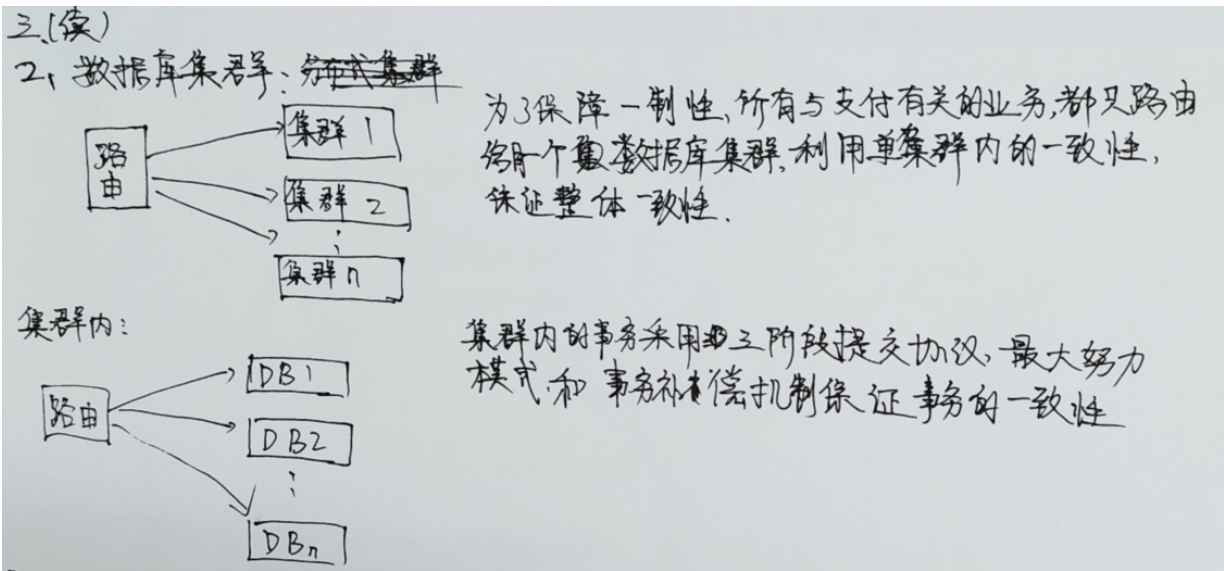 三、(续)
2、数据库集群:分布式集群
路由
集群1
集群2
⋮
集群n
为了保障一制性、所有与支付有关的业务,都只路由
给同一个数据库集群,利用单集群内的一致性,
保证整体一致性.
集群内:
路由
DB1
DB2
⋮
DBn
集群内的事务采用三阶段提交协议、最大努力
模式和事务补偿机制保证事务的一致性